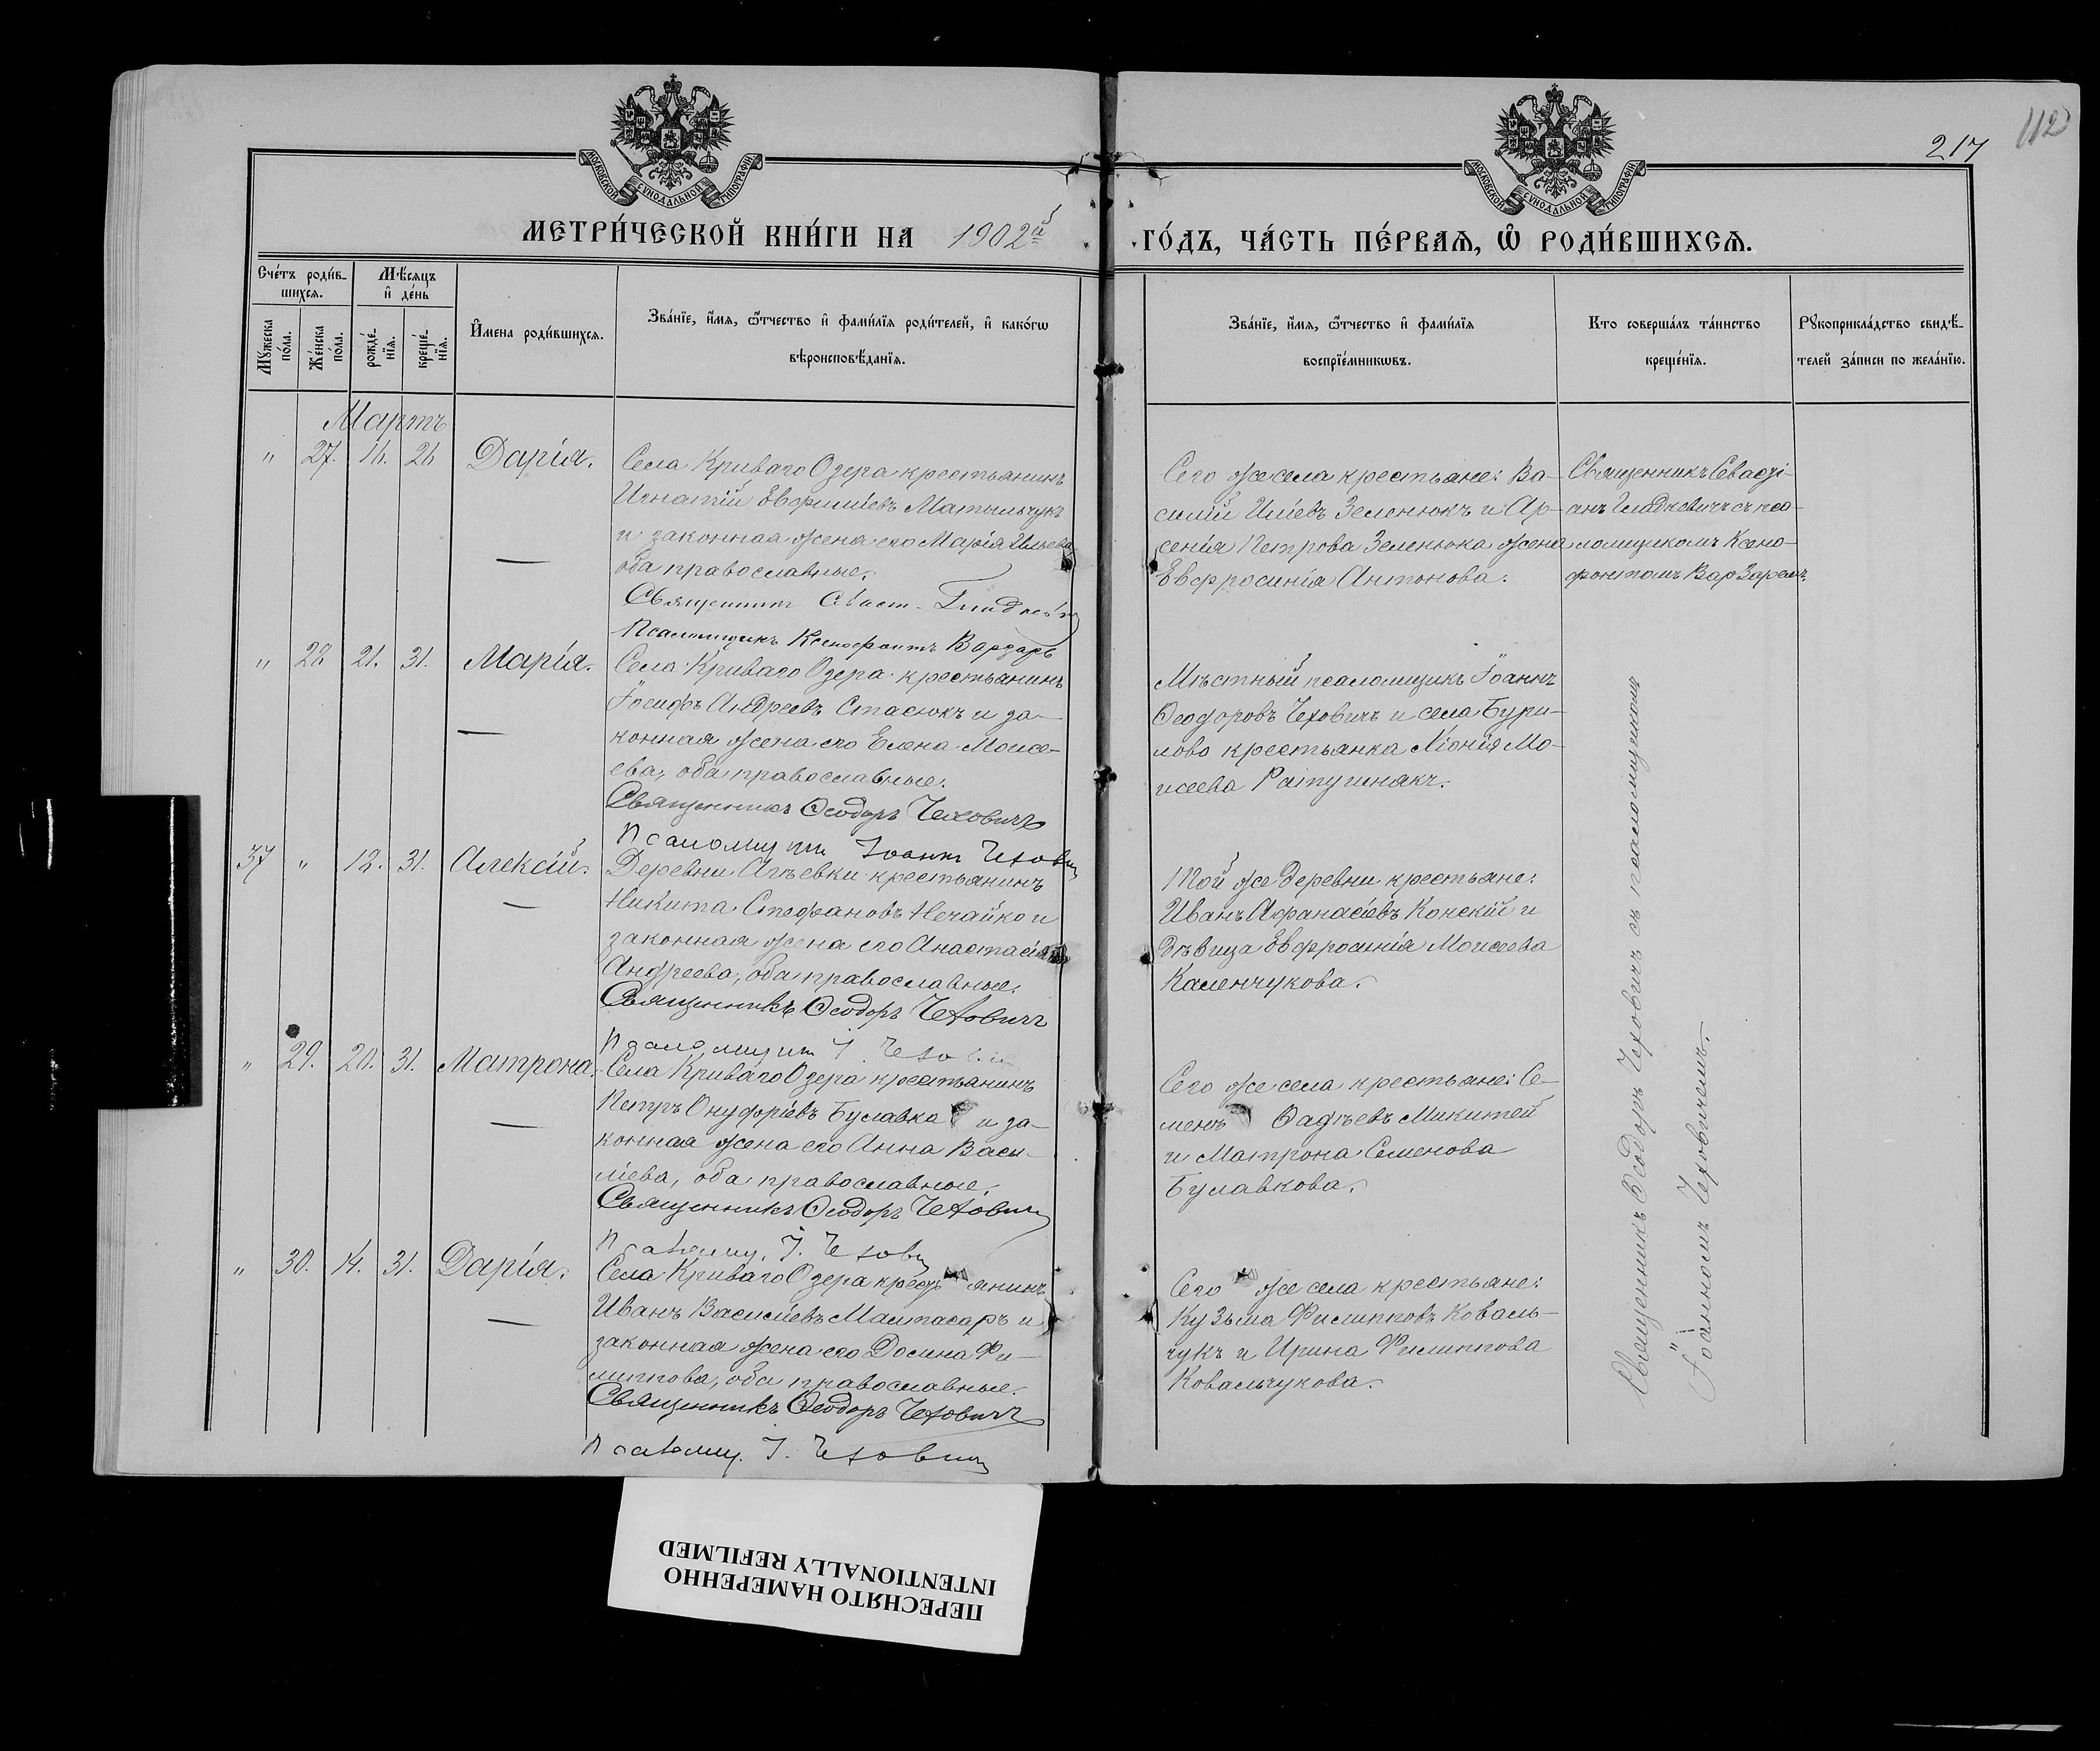 112
217
МОСКОВСКОЙ СУНОДАЛЬНОЙ ТИПОГРАФІИ
МОСКОВСКОЙ СУНОДАЛЬНОЙ ТИПОГРАФІИ
МЕТРИ́ЧЕСКОЙ КНИ́ГИ НА 1902й
ГО́ДЪ, ЧА́СТЬ ПЕ́РВАЯ, Ѡ РОДИ́ВШИХСЯ.
Сче́тъ роди́в-
шихся.
Мѣ́сяцъ
и҆ де́нь
Му́жеска
по́ла.
Же́нска
по́ла.
рожде́-
нїя.
креще́-
нїя.
И҆мена роди́вшихся.
Зва́нїе, и҆́мя, ѻ҆́тчество и҆ фами́лїя роди́телей, и҆ како́гѡ
вѣроисповѣ́данїя.
Зва́нїе, и҆́мя, ѻ҆́тчество и҆ фами́лїя
воспрїе́мникѡвъ.
Кто соверша́лъ та́инство
креще́нїя.
Рꙋкоприкла́дство свидѣ́-
телей за́писи по жела́нїю.
Мартъ
" 27. 16. 26 Дарія.
Села Криваго Озера крестьянинъ
Игнатій Евфиміевъ Матыльчукъ
и законная жена его Марія Ильева
оба православные.
Священник Севаст. Гладкевич
Псаломщикъ Ксенофонтъ Варзарь
Сего же села крестьяне: Ва-
силій Иліевъ Зеленюкъ и Ар-
сенія Петрова Зеленюка жена
Евфросинія Антонова.
Священникъ Севасті-
анъ Гладкевичъ съ псо-
ломщикомъ Ксено-
фонтомъ Варзаремъ.
" 28. 21. 31. Марія.
Села Криваго Озера крестьянинъ
Іосифъ Андреевъ Стасюкъ и за-
конная жена его Елена Моисе-
ева, оба православные.
Священникъ Ѳеодоръ Чеховичъ
Псаломщик Іоанн Чехович
Мѣстный псаломщикъ Іоаннъ
Ѳеодоровъ Чеховичъ и села Бури-
лово крестьянка Мо-
исеева Ратушнякъ.
37 " 12. 31. Алексій.
Деревни крестьянинъ
Никита Стефановъ Нечайко и
законная жена его Анастасія
Андреева, оба православные.
Священникъ Ѳеодоръ Чеховичъ
Псаломщик І. Чехович
Той же деревни крестьяне:
Иванъ Афанасіевъ Конскій и
дѣвица Евфросинія Моисеева
Каленчукова.
" 29. 20. 31. Матрона.
Села Криваго Озера крестьянинъ
Петръ Онуфріевъ Булавка и за-
конная жена его Анна Васи-
ліева, оба православные.
Священникъ Ѳеодоръ Чехович
Псаломщ. І. Чехович
Сего же села крестьяне: Се-
менъ Ѳадѣевъ Микитей
и Матрона Семенова
Булавкова.
" 30. 14. 31. Дарія.
Села Криваго Озера крестьянинъ
Иванъ Василіевъ Малтасаръ и
законная жена его Домна Фи-
липпова, оба православные.
Священникъ Ѳеодоръ Чеховичъ
Псаломщ. І. Чехович
Сего же села крестьяне:
Кузьма Филипповъ Коваль-
чукъ и Ирина Филиппова
Ковальчукова.
Священникъ Ѳеодоръ Чеховичъ съ псаломщикомъ
Іоанномъ Чеховичемъ.
ПЕРЕСНЯТО НАМЕРЕННО
INTENTIONALLY REFILMED